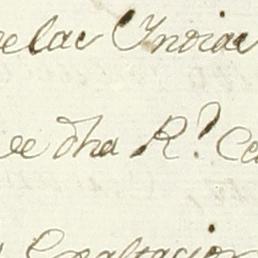 delas Indias
de dha R.l Ce
Exaltacion